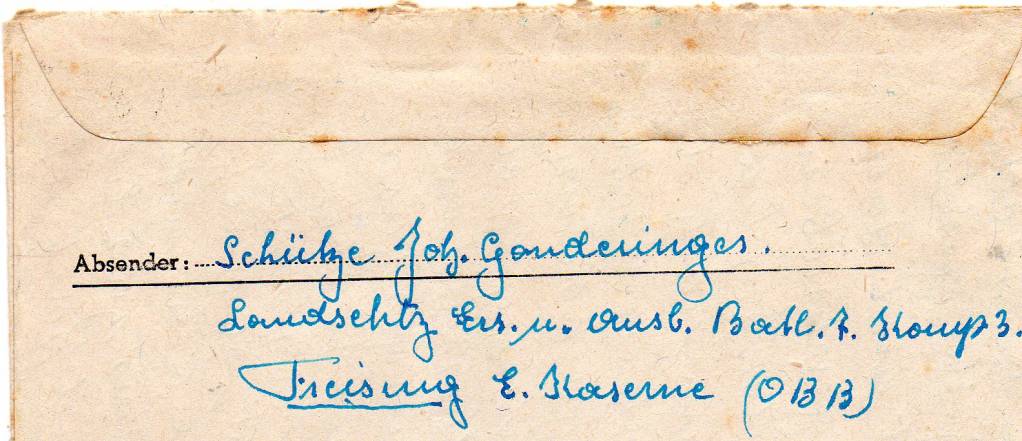 Absender: Schütze Joh. Gonderinges.
Landschtz Ers. u. Ausb. Batl. 7. Komp 3.
Freising E. Kaserne (OBB)